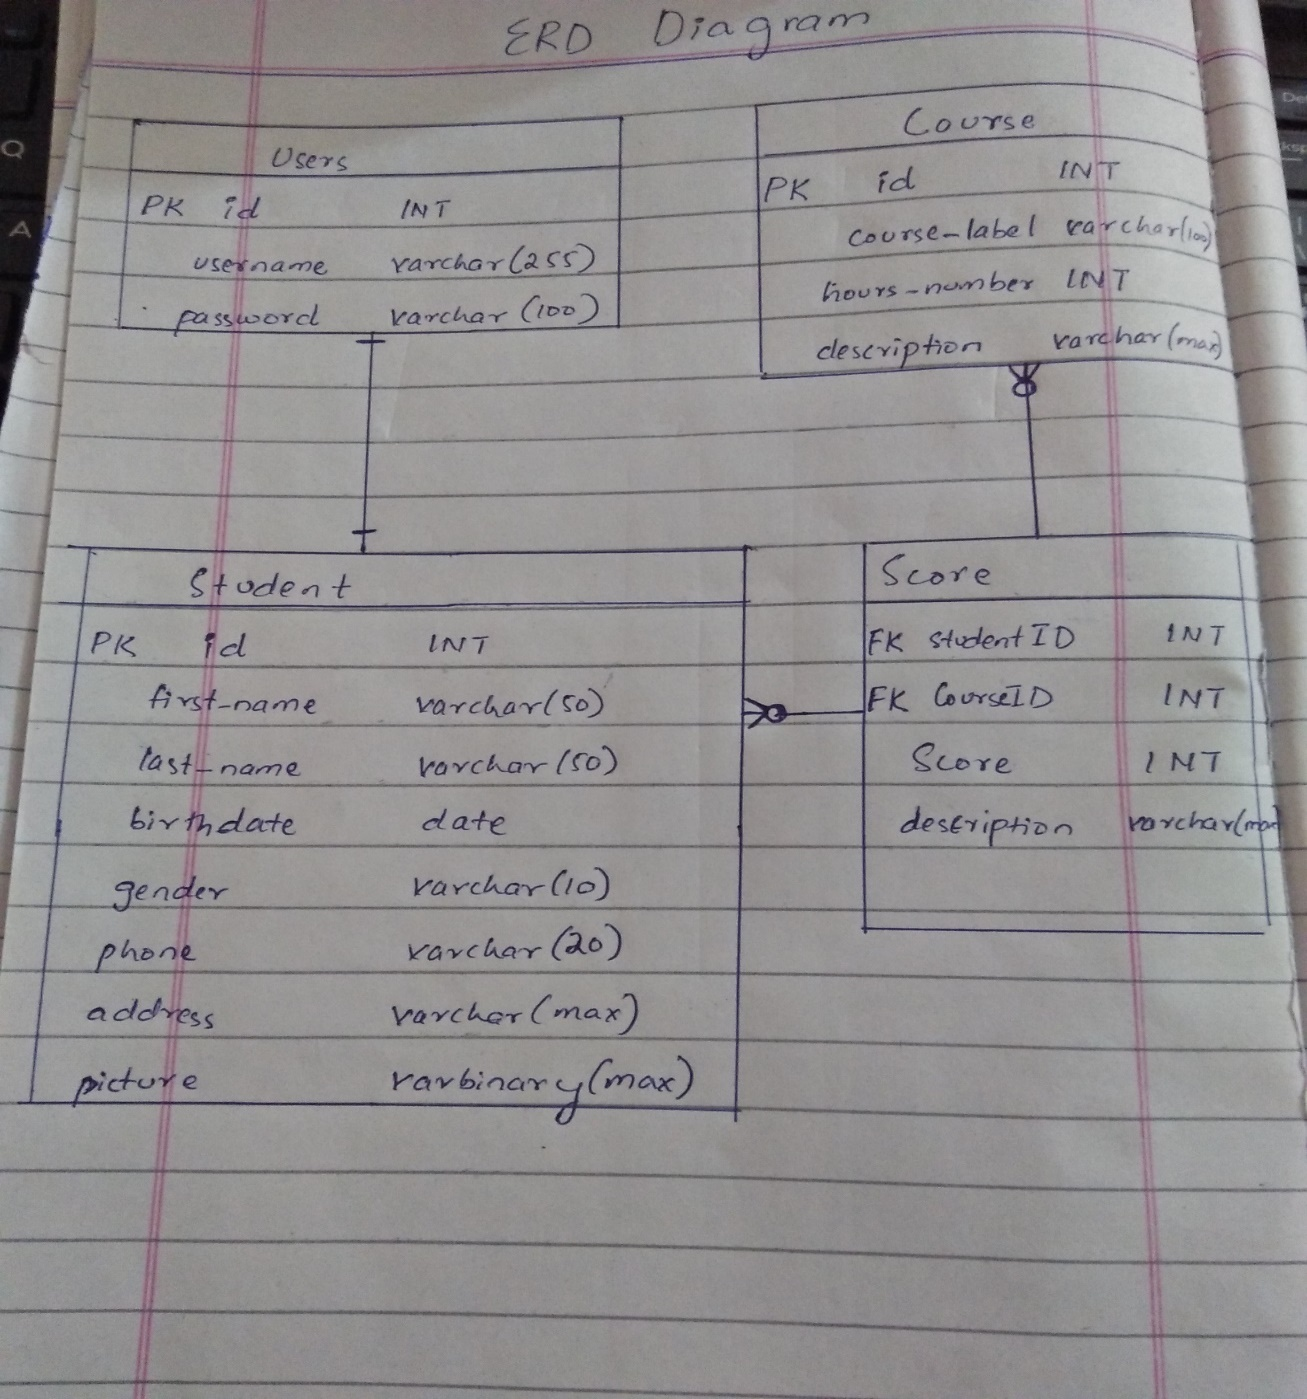 ERD Diagram
Users
PK id INT
username varchar(255)
password varchar(100)
Course
PK id INT
course-label varchar(100)
hours-number INT
description varchar(max)
Student
PK id INT
first-name varchar(50)
last-name varchar(50)
birthdate date
gender varchar(10)
phone varchar(20)
address varchar(max)
picture varbinary(max)
Score
FK studentID INT
FK CourseID INT
Score INT
description varchar(max)
Q
A